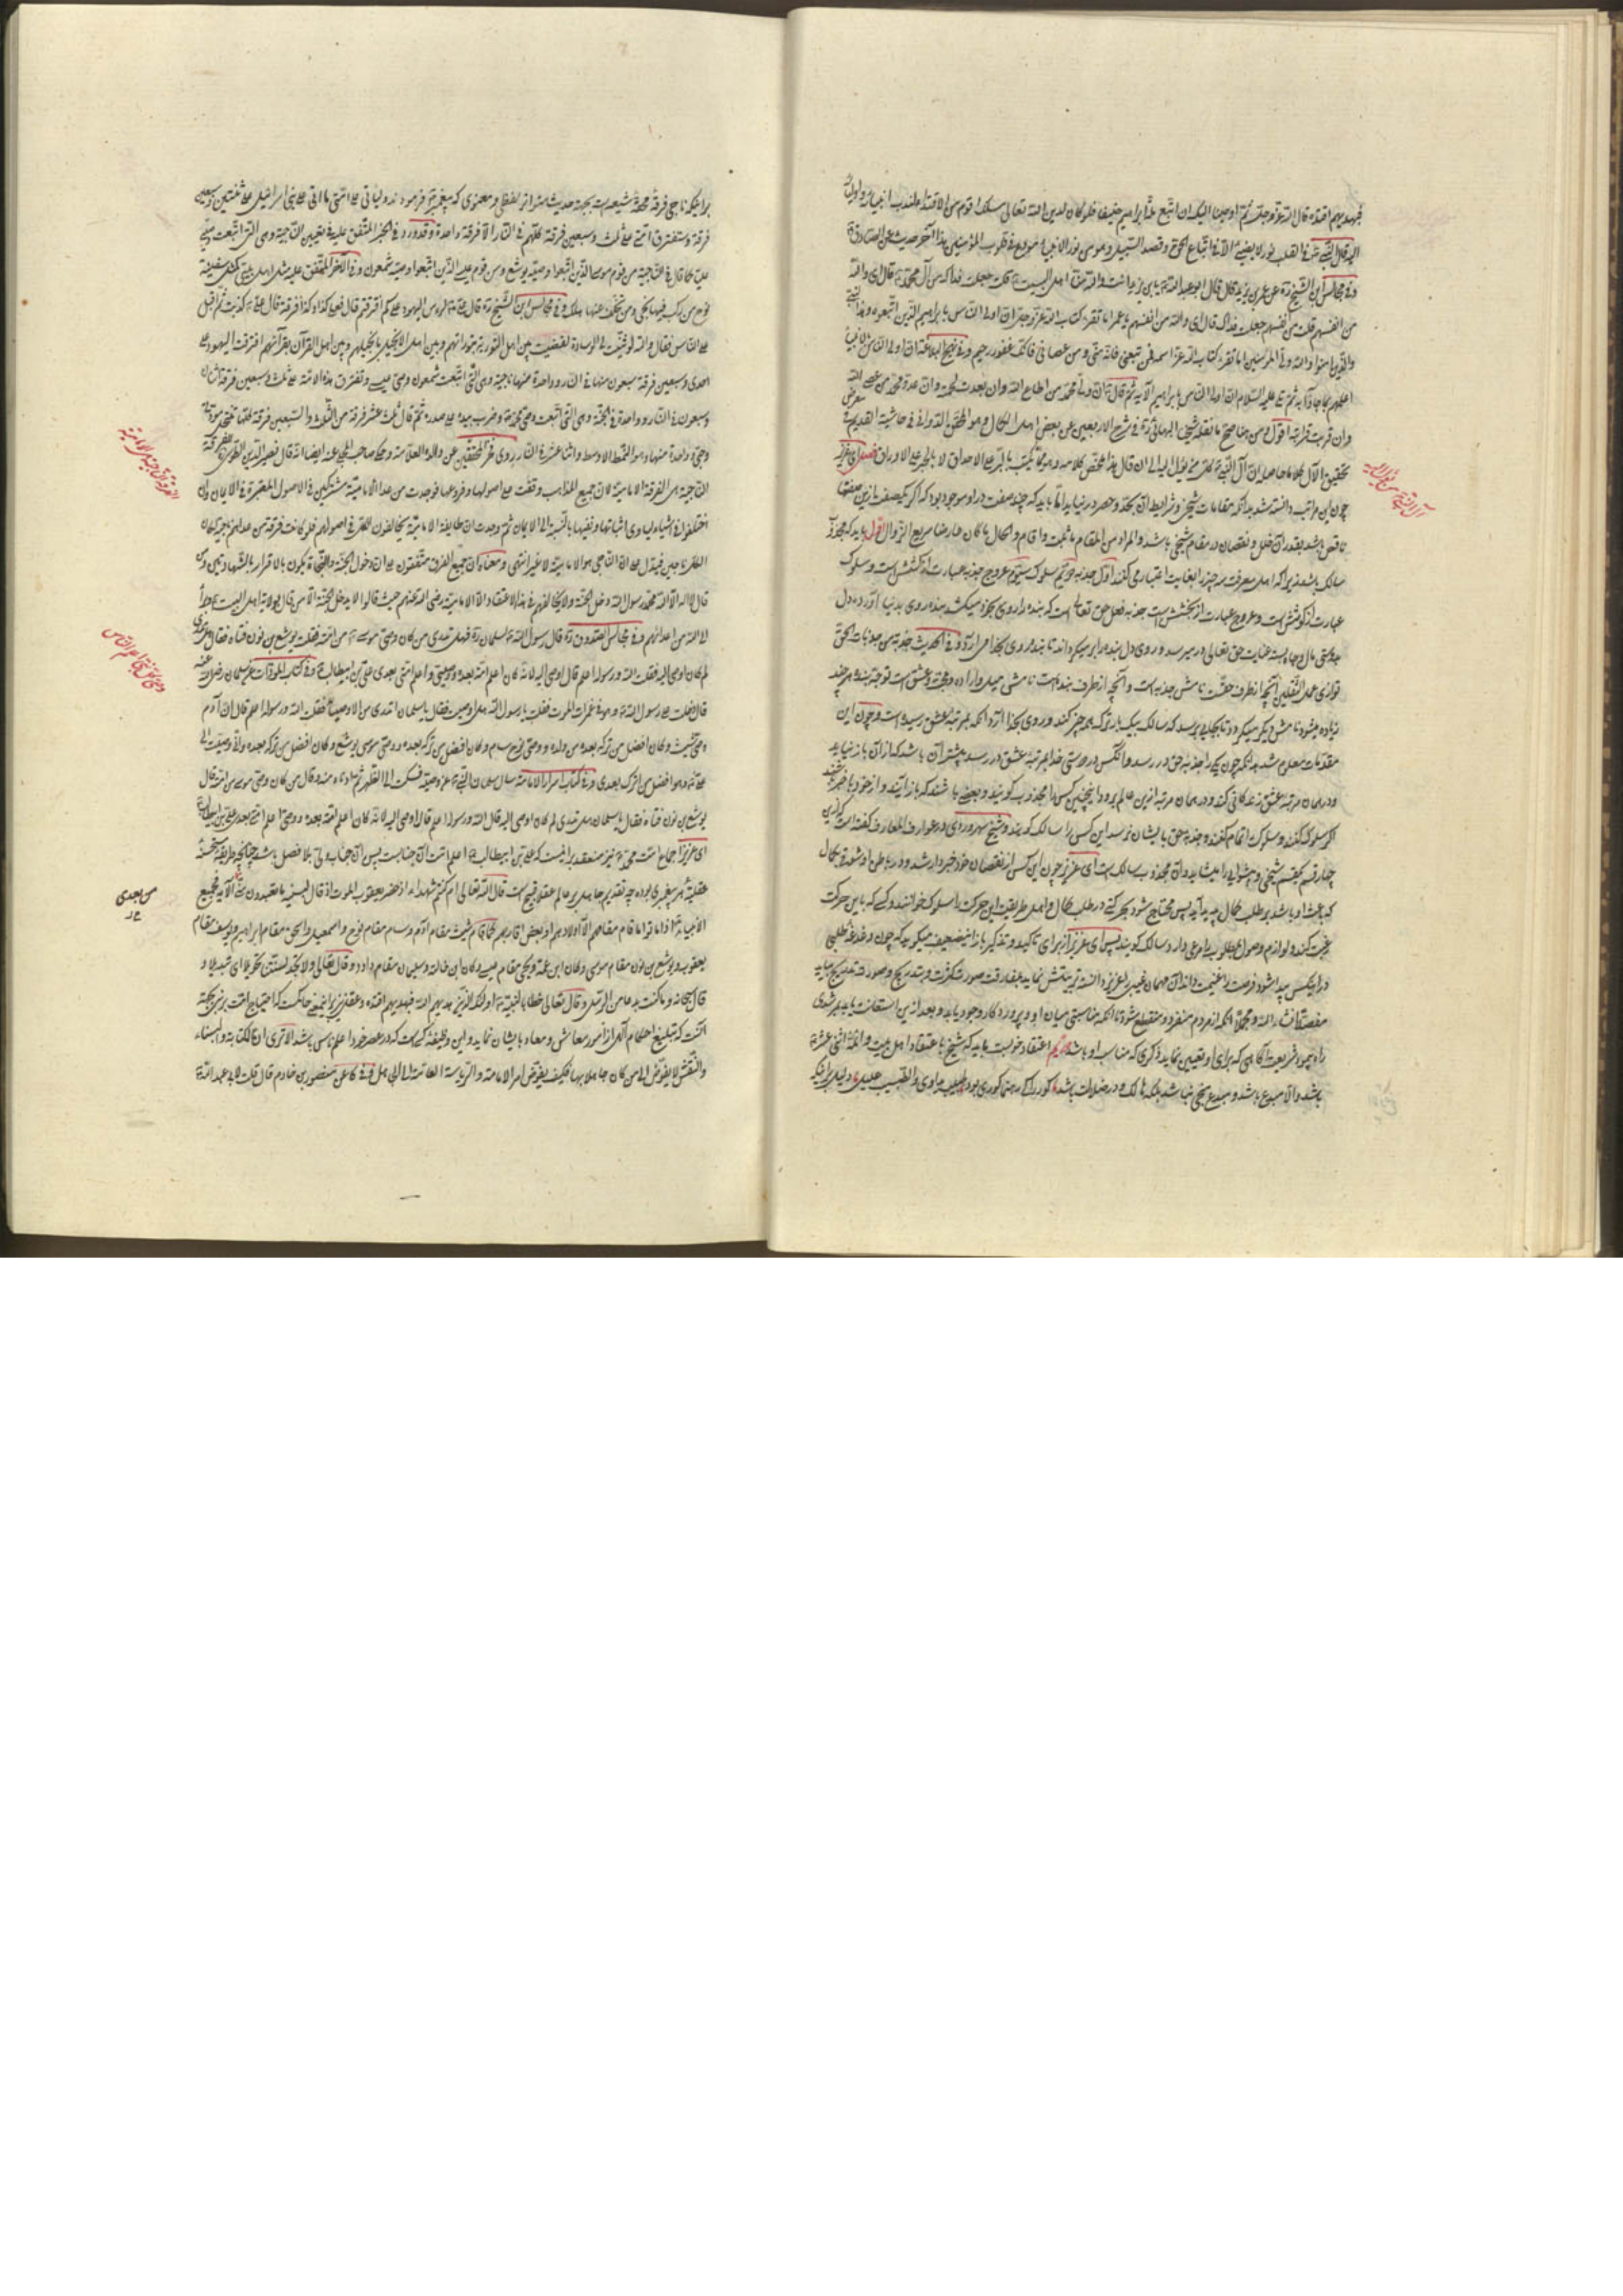 فبهديهم اقتده قال الله عز وجل ثم اوحينا اليك ان اتبع ملة ابراهيم حنيفا فلو كان لدين الله تعالى مسلك اقوم من الاقتداء لندب انبياءه واولياءه
اليه قال النبي في القلب نور لا يضيء الا في اتباع الحق وقصد السبيل وهو من نور الانبياء مودع في قلوب المؤمنين هذا آخر حديث عن الصادق
وفي مجالس ابن الشيخ ره عن عمر بن يزيد قال قال ابو عبد الله يا بن يزيد انت والله منا اهل البيت قلت جعلت فداك من آل محمد قال اي والله
من انفسهم قلت من انفسهم جعلت فداك قال اي والله من انفسهم يا عمر اما تقرء كتاب الله عز وجل ان اولى الناس بابراهيم للذين اتبعوه وهذا النبي
والذين امنوا والله ولي المؤمنين اما تقرء كتاب الله عز اسمه فمن تبعني فانه مني ومن عصاني فانك غفور رحيم وفي نهج البلاغه ان اولى الناس بالانبياء
اعلمهم بما جاؤا به ثم تلا عليه السلام ان اولى الناس بابراهيم الآيه ثم قال ان ولي محمد من اطاع الله وان بعدت لحمته وان عدو محمد من عصى الله
وان قربت قرابته اقول ومن هنا صح ما نقله شيخنا البهائي ره في شرح الاربعين عن بعض اهل الكمال وهو المحقق الدواني في حاشية
تحقيق الآل كلاما حاصله ان آل النبي كل من يؤل اليه الى ان قال هذا ملخص كلامه وهو مما يكتب بالتبر على الاحداق لا بالحبر على الاوراق فصل اى عزيز
چون اين مراتب دانسته شد بدانكه مقامات شيخي وشرايط آن بحد وحصر در نيايد اما بايد كه چند صفت در او موجود بود كه اگر يكصفت ازين صفتها
ناقص باشد بقدر آن خلل ونقصان در مقام شيخي باشد والمراد من المقام ما ثبت واقام والحال ما كان عارضا سريع الزوال اول بايد كه مجذوب
سالك باشد زيرا كه اهل معرفت سه چيز را بغايت اعتبار مى كنند اول جذبه دوم سلوك سيوم عروج جذبه عبارت از كشش است وسلوك
عبارت از كوشش است وعروج عبارت از بخشش است جذبه فعل حق تعالى است كه بنده را روى بخود ميكشد بنده روى بدنيا آورده ودل
بدوستى مال وجاه بسته عنايت حق تعالى در ميرسد وروى دل بنده را برميگرداند تا بنده روى بخدا مى آرد وفي الحديث جذبة من جذبات الحق
توازي عمل الثقلين آنچه از طرف حقست نامش جذبه است وآنچه از طرف بنده است نامش ميل واراده ومحبت وعشق است توجه بنده هر چند
زياده ميشود نامش ديگر ميگردد تا بجايى برسد كه سالك بيك بار ترك همه چيز كند وروى بخدا آرد آنكه بمرتبه عشق رسيده است وچون اين
مقدمات معلوم شد بدانكه چون يكى را جذبه حق در رسد وآنكس در دوستى خدا بمرتبه عشق در رسد بيشتر آن باشد كه از آن باز نيايد
ودر همان مرتبه عشق زندگانى كند ودر همان مرتبه ازين عالم برود اينچنين كس را مجذوب گويند وبعضى باشند كه باز آيند واز خود باخبر شوند
اگر سلوك كنند وسلوك اتمام كنند وجذبه حق بايشان نرسد اين كس را سالك گويند وشيخ سهروردى در عوارف المعارف گفته است كه ازين
چهار قسم يكقسم شيخي وپيشوايى را ميشايد وآن مجذوب سالك است اى عزيز چون اين كس از نقصان خود خبردار شد ودر باطن او شوق كمال
كه باعث او باشد بر طلب كمال پديد آيد پس محتاج شود بحركتى در طلب كمال واهل طريقت اين حركت را سلوك خوانند وكسى كه باين حركت
رغبت كند ولوازم وصول مطلوب مرعى دارد سالك گويند پس اى عزيز از براى تاكيد وتذكير باز اين ضعيف ميگويد كه چون دغدغه طلبى
در اينكس پيدا شود فرصت را غنيمت داند آن مهمان غيبى را عزيز دانسته تربيتش نمايد بمفارقت صورت كثرت وبتدريج
مفصلا انشاء الله ومجملا آنكه از مردم منفرد ومنقطع شود تا آنكه مناسبتى ميان او وپروردگار وجود يابد وبعد ازين استعانت يابد بمرشدى
راه پيموده شريعت آگاهى كه براى او تعيين نمايد ذكرى كه مناسب او باشد دويم اعتقاد خوبست بايد كه شيخ با عتقاد اهل بيت وائمه اثنى عشر
باشد والا مبدع باشد ومبدع شيخ نباشد بلكه هالك ودر ضلالت باشد كور را كى رهنما كورى بود طبيب يداوي والطبيب عليل دليل بر اينكه
آل النبي من يؤل اليه
براينكه ناجى فرقه محقه شيعه است بجهة حديث متواتر لفظى ومعنوى كه پيغمبر فرموده ليأتي على امتي ما اتى على بني اسرائيل على ثنتين وسبعين
فرقة وستفترق امتي على ثلث وسبعين فرقة كلهم في النار الا فرقة واحدة وقد ورد في الخبر المتفق عليه في تعيين الناجية وهي التي اتبعت وصيي
علي كما قال في الناجية من قوم موسى الذين اتبعوا وصيه يوشع ومن قوم عيسى الذين اتبعوا وصيه شمعون وفي الآخر المتفق عليه مثل اهل بيتي كمثل سفينة
نوح من ركب فيها نجى ومن تخلف عنها هلك وفي مجالس ابن الشيخ ره قال علي لرأس اليهود على كم افترقتم قال فعلى كذا وكذا فرقة قال علي كذبت ثم اقبل
على الناس فقال والله لو ثنيت لي الوسادة لقضيت بين اهل التورية بتوراتهم وبين اهل الانجيل بانجيلهم وبين اهل القرآن بقرآنهم افترقت اليهود على
احدى وسبعين فرقة سبعون منها في النار وواحدة منها ناجية وهي التي اتبعت شمعون وصي عيسى وتفترق هذه الامة على ثلث وسبعين فرقة اثنان
وسبعون في النار وواحدة في الجنة وهي التي اتبعت وصي محمد وضرب بيده على صدره ثم قال ثلث عشر فرقة من الثلث والسبعين فرقة كلها تنتحل مودتي
وحبي واحدة منها وهم النمط الاوسط واثنا عشرة في النار روى فخر المحققين عن والده العلامة وحكى صاحب المجلي عنه ايضا انه قال نصير الدين الطوسي الفرقة
الناجية هي الفرقة الامامية لان جميع المذاهب وقفت على اصولها وفروعها فوجدت من عدا الامامية مشتركين في الاصول المعتبرة في الايمان وان
اختلفوا في اشياء يساوي اثباتها ونفيها بالنسبة الى الايمان ثم وجدت ان طايفة الامامية يخالفون الكل في اصولهم فلو كانت فرقة من عداهم ناجية لكان
الكل ناجين فيدل على ان الناجي هو الامامية لا غير انتهى ومعناه ان جميع الفرق متفقون على ان دخول الجنة والنجاة يكون بالاقرار بالشهادتين ومن
قال لا اله الا الله محمد رسول الله دخل الجنة ولا يخالفهم في هذا الاعتقاد الا الامامية رضي الله عنهم حيث قالوا لا يدخل الجنة الا من قال بولاية اهل البيت وتبرأ
الى الله من اعدائهم وفي مجالس الصدوق ره قال رسول الله لسلمان ره فهل تدري من كان وصي موسى من امته فقلت يوشع بن نون فتاه فقال هل تدري
لم كان اوصى اليه فقلت الله ورسوله اعلم قال اوصى اليه لانه كان اعلم امته بعده ووصيي واعلم امتي بعدي علي بن ابيطالب وفي كتاب عن سلمان رضي الله عنه
قال دخلت على رسول الله وهو في غمرات الموت فقلت يا رسول الله هل اوصيت فقال يا سلمان اتدري من الاوصياء فقلت الله ورسوله اعلم قال ان آدم
وصى شيث وكان افضل من تركه بعده من ولده ووصى نوح سام وكان افضل من تركه بعده ووصى موسى يوشع وكان افضل من تركه بعده واني اوصيت الى
علي وهو افضل من اترك بعدي وفي كتاب اسرار الامامة سال سلمان النبي عن وصيه فسكت الى الظهر ثم ناداه ودنا منه وقال من كان وصي موسى من امته قال
يوشع بن نون فتاه فقال يا سلمان هل تدري لم كان اوصى اليه قال الله ورسوله اعلم قال اوصى اليه لانه كان اعلم امته بعده ووصيي اعلم امتي بعدي علي بن ابيطالب
اى عزيز اجماع امت محمد نيز منعقد بر اينست كه علي بن ابيطالب اعلم امت آن جنابست پس آن جناب ولى بلا فصل باشد چنانچه طريقه مستحسنه
عقليه هر پيغمبرى بوده چه تقديم جاهل بر عالم عقلا قبيح است قال الله تعالى ام كنتم شهداء اذ حضر يعقوب الموت اذ قال لبنيه ما تعبدون من الآية فجميع
الانبياء اذا ماتوا ما قام مقامهم الا اولادهم او بعض اقاربهم كما قام شيث مقام آدم وسام مقام نوح واسمعيل واسحق مقام ابراهيم ويوسف مقام
يعقوب ويوشع بن نون مقام موسى وكان ابن عمه ويحيى مقام عيسى وكان ابن خالته وسليمان مقام داود وقال تعالى ولا تجد لسنتنا تحويلا اي تبديلا و
قال سبحانه وما كنت بدعا من الرسل وقال تعالى خطابا لنبيه اولئك الذين هديهم الله فبهديهم اقتده وعقل نيز بر اينمعنى حاكمست كه احتياج امت بر نبى بجهة
آنست كه تبليغ احكام الهى از امور معاشى ومعاد بايشان نمايد واين وظيفه كسى است كه در عصر خود اعلم ناس باشد الا ترى ان الكتابة والبناء
والنقش لا يفوض الى من كان جاهلا بها فكيف يفوض امر الامامة والرياسة العامة الى الجاهل وفي كا عن منصور بن حازم قال قلت لابي عبد الله
الفرقة الناجية هي الامامية
وصي كل نبي اعلم الناس
من بعدي